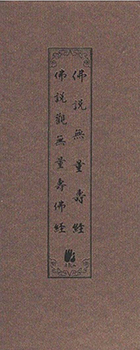 佛說無量壽經
佛說觀無量壽佛經